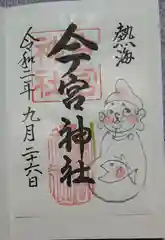 熱海
今宮神社
令和二年九月二十六日